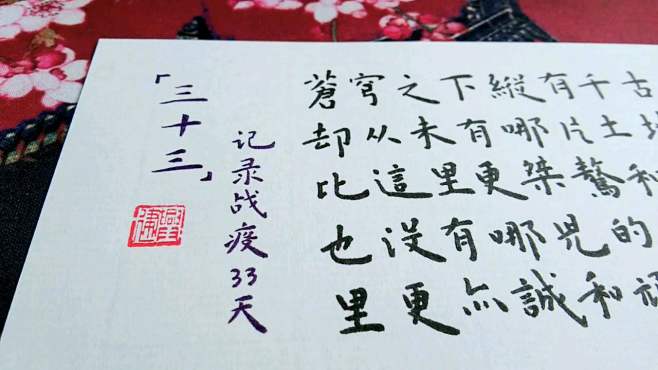 「三十三」
记录战疫33天
蒼穹之下縱有千古
却从未有哪片土
比這里更桀驁和
也没有哪児的
里更尔誠和